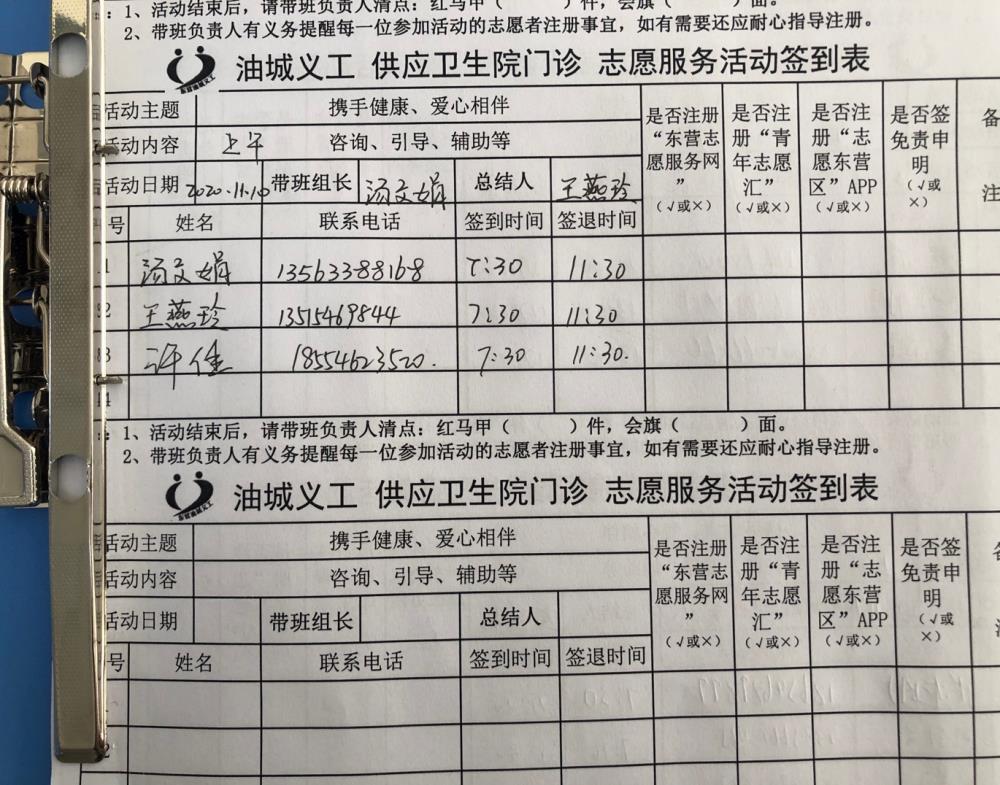 ：1、活动结束后，请带班负责人清点：红马甲（ ）件，会旗（ ）面。
2、带班负责人有义务提醒每一位参加活动的志愿者注册事宜，如有需要还应耐心指导注册。
油城义工 供应卫生院门诊 志愿服务活动签到表
东营油城义工
活动主题 携手健康、爱心相伴 是否注册“东营志愿服务网”（√或×） 是否注册“青年志愿汇”（√或×） 是否注册“志愿东营区”APP（√或×） 是否签免责申明（√或×） 备注
活动内容 上午 咨询、引导、辅助等
活动日期 2020.11.10 带班组长 汤文娟 总结人 王燕玲
号 姓名 联系电话 签到时间 签退时间
1 汤文娟 13563388168 7:30 11:30
2 王燕玲 13515469844 7:30 11:30
3 许佳 18554623520. 7:30 11:30.
4
：1、活动结束后，请带班负责人清点：红马甲（ ）件，会旗（ ）面。
2、带班负责人有义务提醒每一位参加活动的志愿者注册事宜，如有需要还应耐心指导注册。
油城义工 供应卫生院门诊 志愿服务活动签到表
东营油城义工
活动主题 携手健康、爱心相伴 是否注册“东营志愿服务网”（√或×） 是否注册“青年志愿汇”（√或×） 是否注册“志愿东营区”APP（√或×） 是否签免责申明（√或×）
活动内容 咨询、引导、辅助等
活动日期 带班组长 总结人
号 姓名 联系电话 签到时间 签退时间